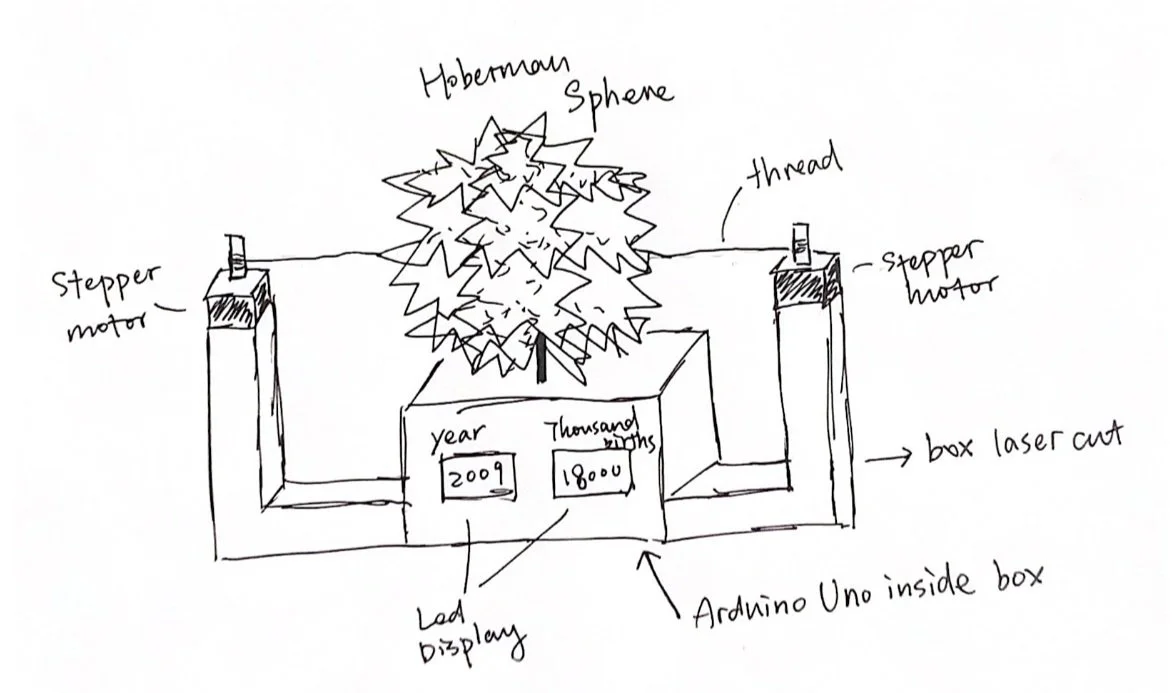 Hoberman
Sphere
thread
Stepper
motor
Stepper
motor
year
Thousand
births
2009
18000
box laser cut
Led
Display
Arduino Uno inside box